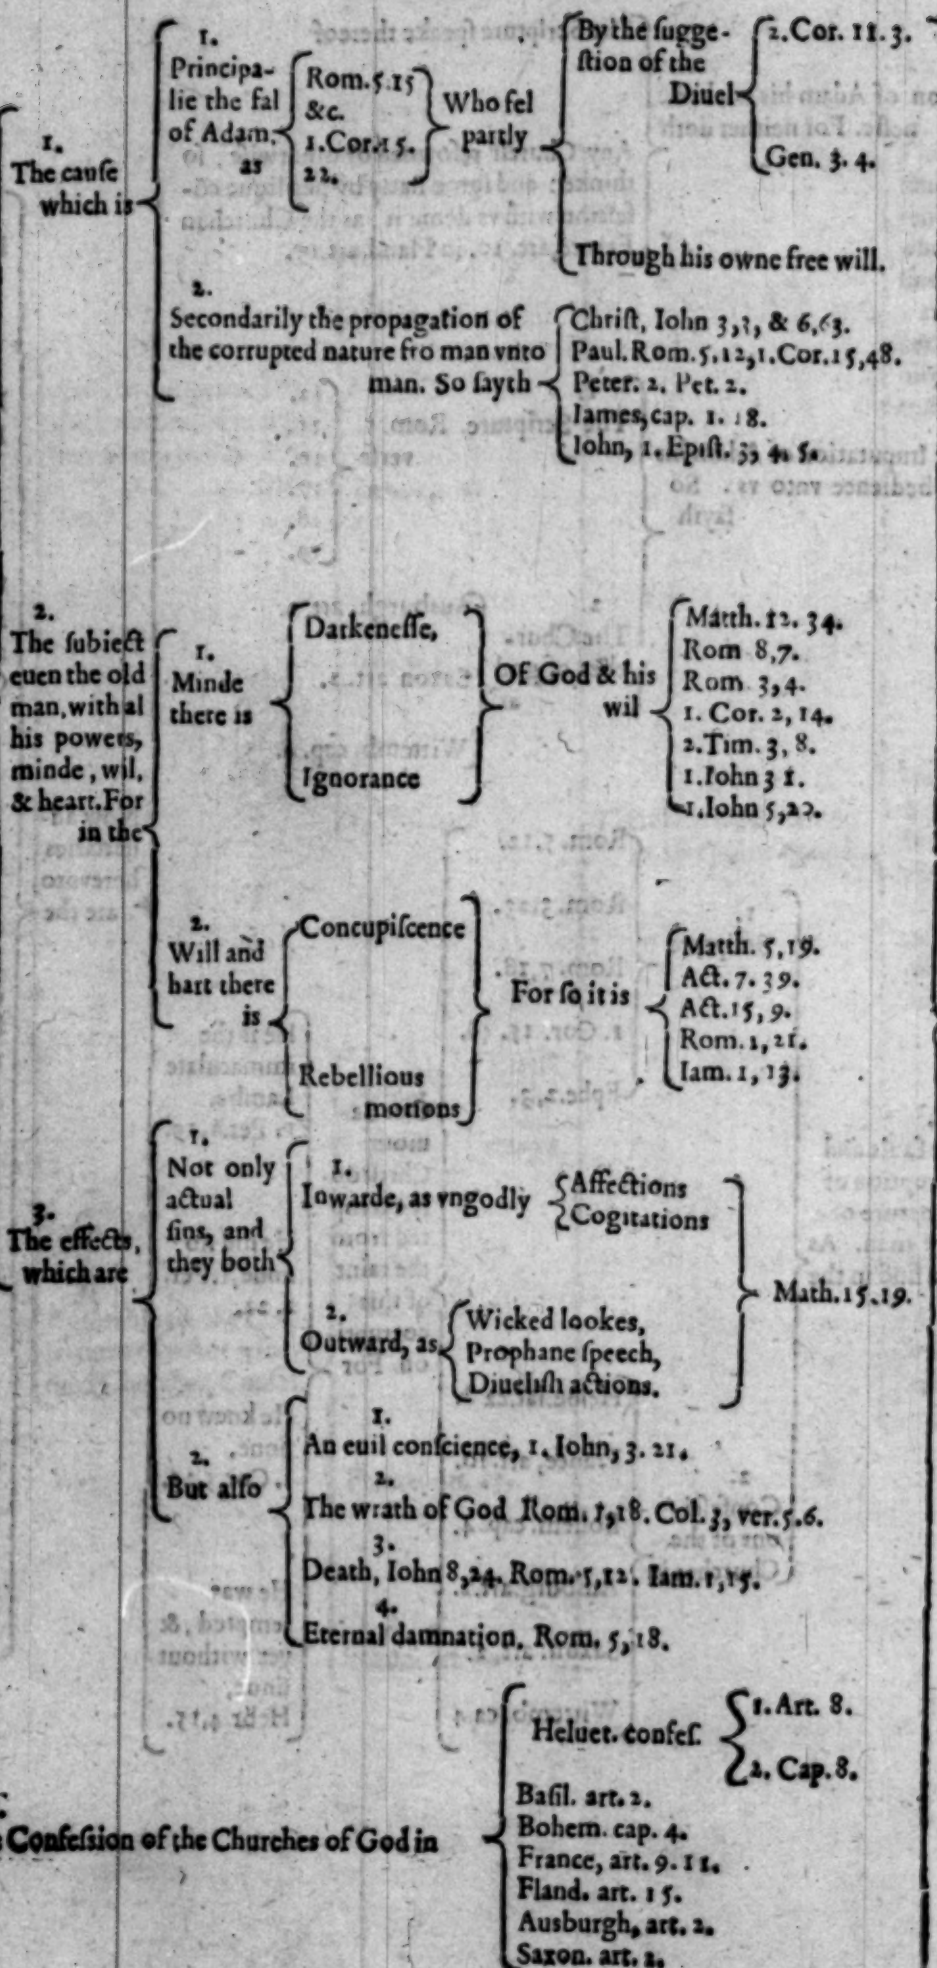 1.
The cauſe
which is
1.
Principa-
lie the fal
of Adam.
as
Rom. 5.15
&c.
1.Cor.15.
22.
Who fel
partly
By the ſugge-
ſtion of the
Diuel
2.Cor. 11.3.
Gen. 3.4.
Through his owne free will.
2.
Secondarily the propagation of
the corrupted nature fro man vnto
man. So ſayth
Chriſt, Iohn 3,3, & 6,63.
Paul. Rom. 5.12, 1.Cor.15,48.
Peter. 2. Pet. 2.
Iames, cap. 1. 18.
Iohn, 1. Epiſt. 3, 4. 5.
2.
The ſubiect
euen the old
man, with al
his powers,
minde, wil,
& heart. For
in the
1.
Minde
there is
Darkeneſſe,
Ignorance
Of God & his
wil
Matth. 12. 34.
Rom 8,7.
Rom 3,4.
1. Cor. 2, 14.
2.Tim. 3, 8.
1.Iohn 3 1.
1.Iohn 5,20.
2.
Will and
hart there
is
Concupiſcence
Rebellious
motions
For ſo it is
Matth. 5,19.
Act. 7. 39.
Act. 15, 9.
Rom. 1, 21.
Iam. 1, 13.
3.
The effects,
which are
1.
Not only
actual
ſins, and
they both
1.
Inwarde, as vngodly
Affections
Cogitations
2.
Outward, as
Wicked lookes,
Prophane ſpeech,
Diueliſh actions.
Math. 15.19.
2.
But alſo
1.
An euil conſcience, 1. Iohn, 3. 21.
2.
The wrath of God Rom. 1,18. Col. 3, ver. 5.6.
3.
Death, Iohn 8,24. Rom. 5,12. Iam. 1,15.
4.
Eternal damnation. Rom. 5,18.
Confeſsion of the Churches of God in
Heluet. confeſ.
1. Art. 8.
2. Cap. 8.
Baſil. art. 2.
Bohem. cap. 4.
France, art. 9. 11.
Fland. art. 15.
Ausburgh, art. 2.
Saxon. art. 2.